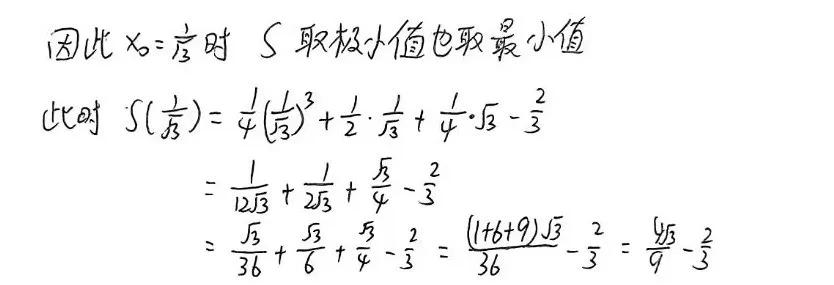 因此 x₀=1/√3 时 S 取极小值也取最小值
此时 S(1/√3) = 1/4(1/√3)³ + 1/2 · 1/√3 + 1/4 · √3 - 2/3
= 1/(12√3) + 1/(2√3) + √3/4 - 2/3
= √3/36 + √3/6 + √3/4 - 2/3 = (1+6+9)√3/36 - 2/3 = 4√3/9 - 2/3